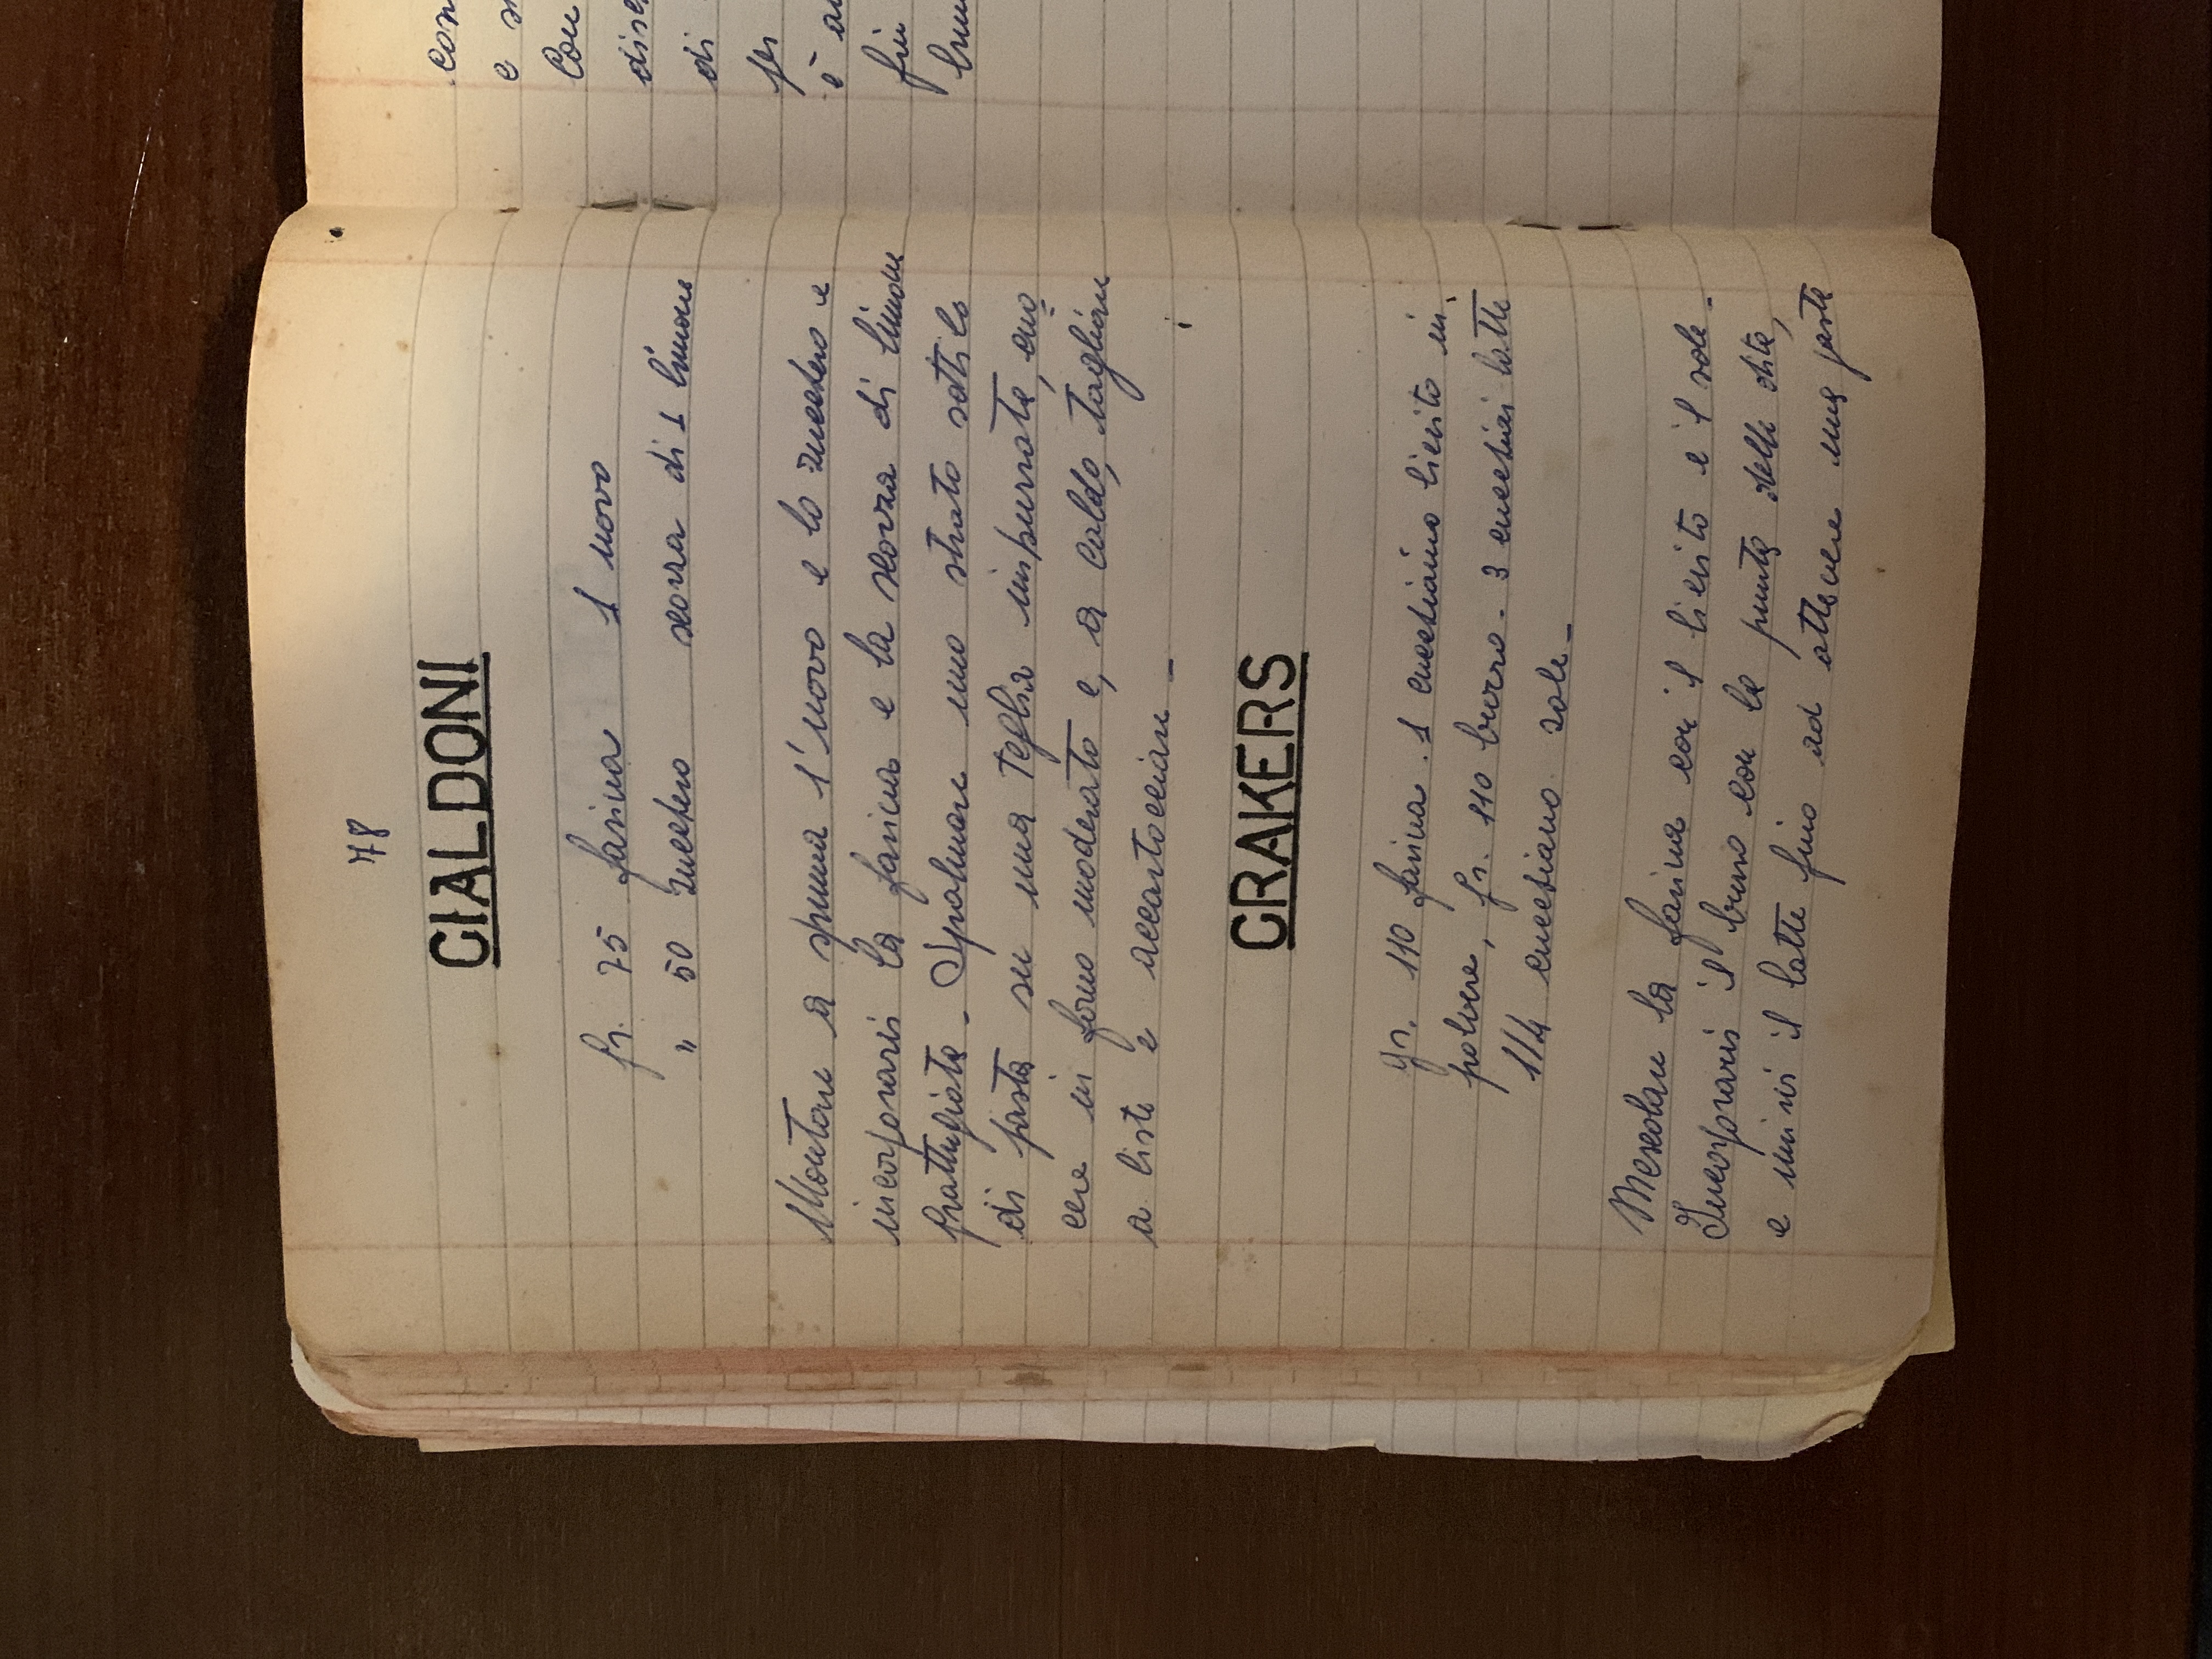 78
CIALDONI
gr. 75 farina 1 uovo
" 50 zucchero scorza di 1 limone
Montare a spuma l'uovo e lo zucchero e
incorporarvi la farina e la scorza di limone
grattugiata - Spalmare uno strato sottile
di pasta su una teglia imburrata, cuo=
cere in forno moderato e, a caldo, tagliare
a liste e accartocciare -
CRAKERS
gr. 110 farina . 1 cucchiaino lievito in
polvere, gr. 110 burro - 3 cucchiai latte
1/4 cucchiaino sale -
Mescolare la farina con il lievito e il sale -
Incorporarvi il burro con la punta delle dita,
e unirvi il latte fino ad ottenere una pasta
con
e
Con
di
per
è